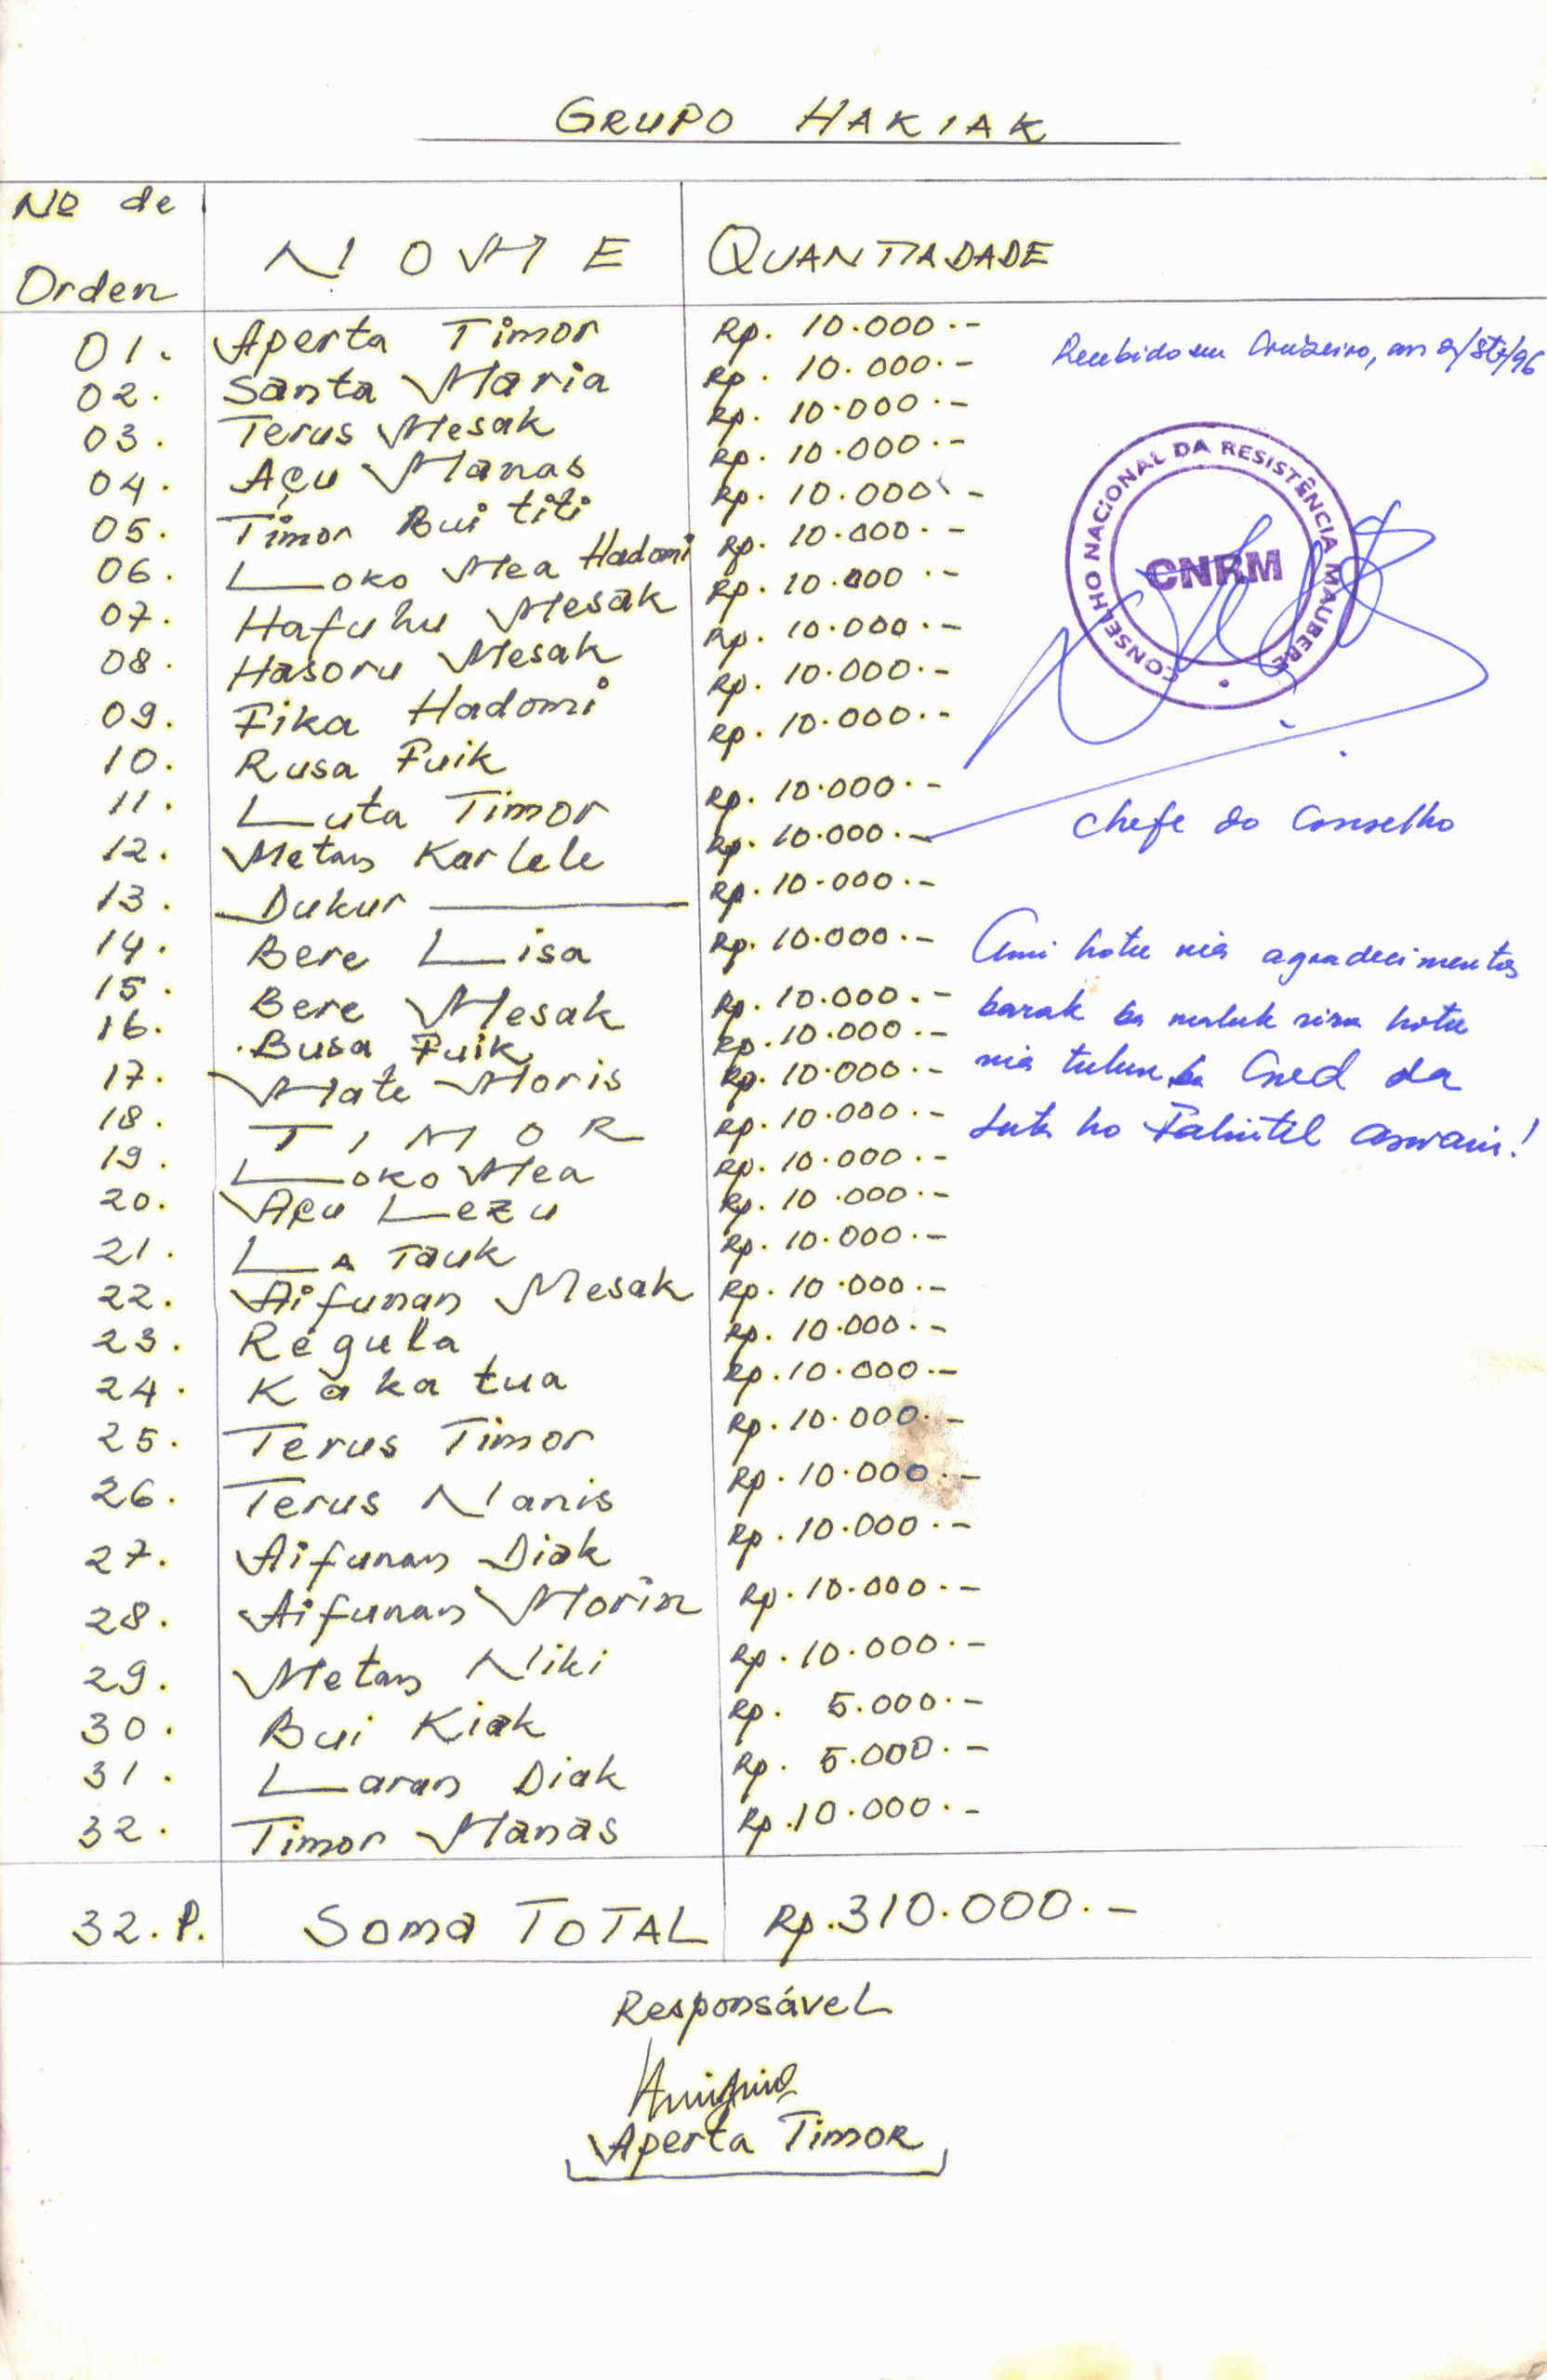 GRUPO HAKIAK
Nº de Orden NOME QUANTIADADE
01. Aperta Timor Rp. 10.000.-
02. Santa Maria Rp. 10.000.-
03. Terus Mesak Rp. 10.000.-
04. Açu Manas Rp. 10.000.-
05. Timor Bui titi Rp. 10.000.-
06. Loko Mea Hadomi Rp. 10.000.-
07. Hafuhu Mesak Rp. 10.000.-
08. Hasoru Mesak Rp. 10.000.-
09. Fika Hadomi Rp. 10.000.-
10. Rusa Fuik Rp. 10.000.-
11. Luta Timor Rp. 10.000.-
12. Metan Karlele Rp. 10.000.-
13. Dukur Rp. 10.000.-
14. Bere Lisa Rp. 10.000.-
15. Bere Mesak Rp. 10.000.-
16. Busa Fuik Rp. 10.000.-
17. Mate Moris Rp. 10.000.-
18. TIMOR Rp. 10.000.-
19. Loko Mea Rp. 10.000.-
20. Açu Lezu Rp. 10.000.-
21. La Tauk Rp. 10.000.-
22. Aifunan Mesak Rp. 10.000.-
23. Régula Rp. 10.000.-
24. Kaka tua Rp. 10.000.-
25. Terus Timor Rp. 10.000.-
26. Terus Nanis Rp. 10.000.-
27. Aifunan Diak Rp. 10.000.-
28. Aifunan Morin Rp. 10.000.-
29. Metan Niki Rp. 10.000.-
30. Bui Kiak Rp. 5.000.-
31. Laran Diak Rp. 5.000.-
32. Timor Manas Rp. 10.000.-
32. P. Soma TOTAL Rp. 310.000.-
Responsável
Aperta Timor
Recebido em Cruzeiro, 96
CONSELHO NACIONAL DA RESISTÊNCIA MAUBERE
CNRM
Chefe do Conselho
Ami hotu nia agradecimentos
barak ba maluk sira hotu
nia tulun ba
Luta ho Falintil aswain!